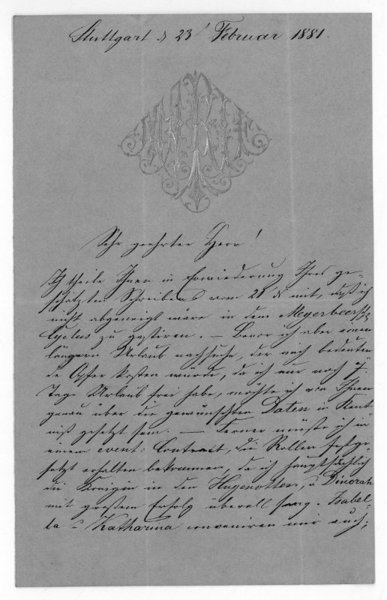 Stuttgart d 23' Februar 1881.
Sehr geehrter Herr!
Ich theile Ihnen in Erwiederung Ihres ge-
schätzten Schreibens vom 22 d mit, daß ich
nicht abgeneigt wäre in dem Meyerbeer
Cyclus zu gastiren. – Bevor ich aber einen
längern Urlaub nachsuche, der mich bedeuten-
de Opfer kosten würde, da ich nur noch 7
Tage Urlaub frei habe, möchte ich von Ihnen
genau über die gewünschten Daten in Kennt-
niß gesetzt sein. – Ferner müßte ich in
einem event: Contract, die Rollen festge-
setzt erhalten bekommen, da ich hauptsächlich
die Königin in den Hugenotten, u Dinorah
mit großem Erfolg überall sang. Isabel-
la u Katharina conveniren mir auch;